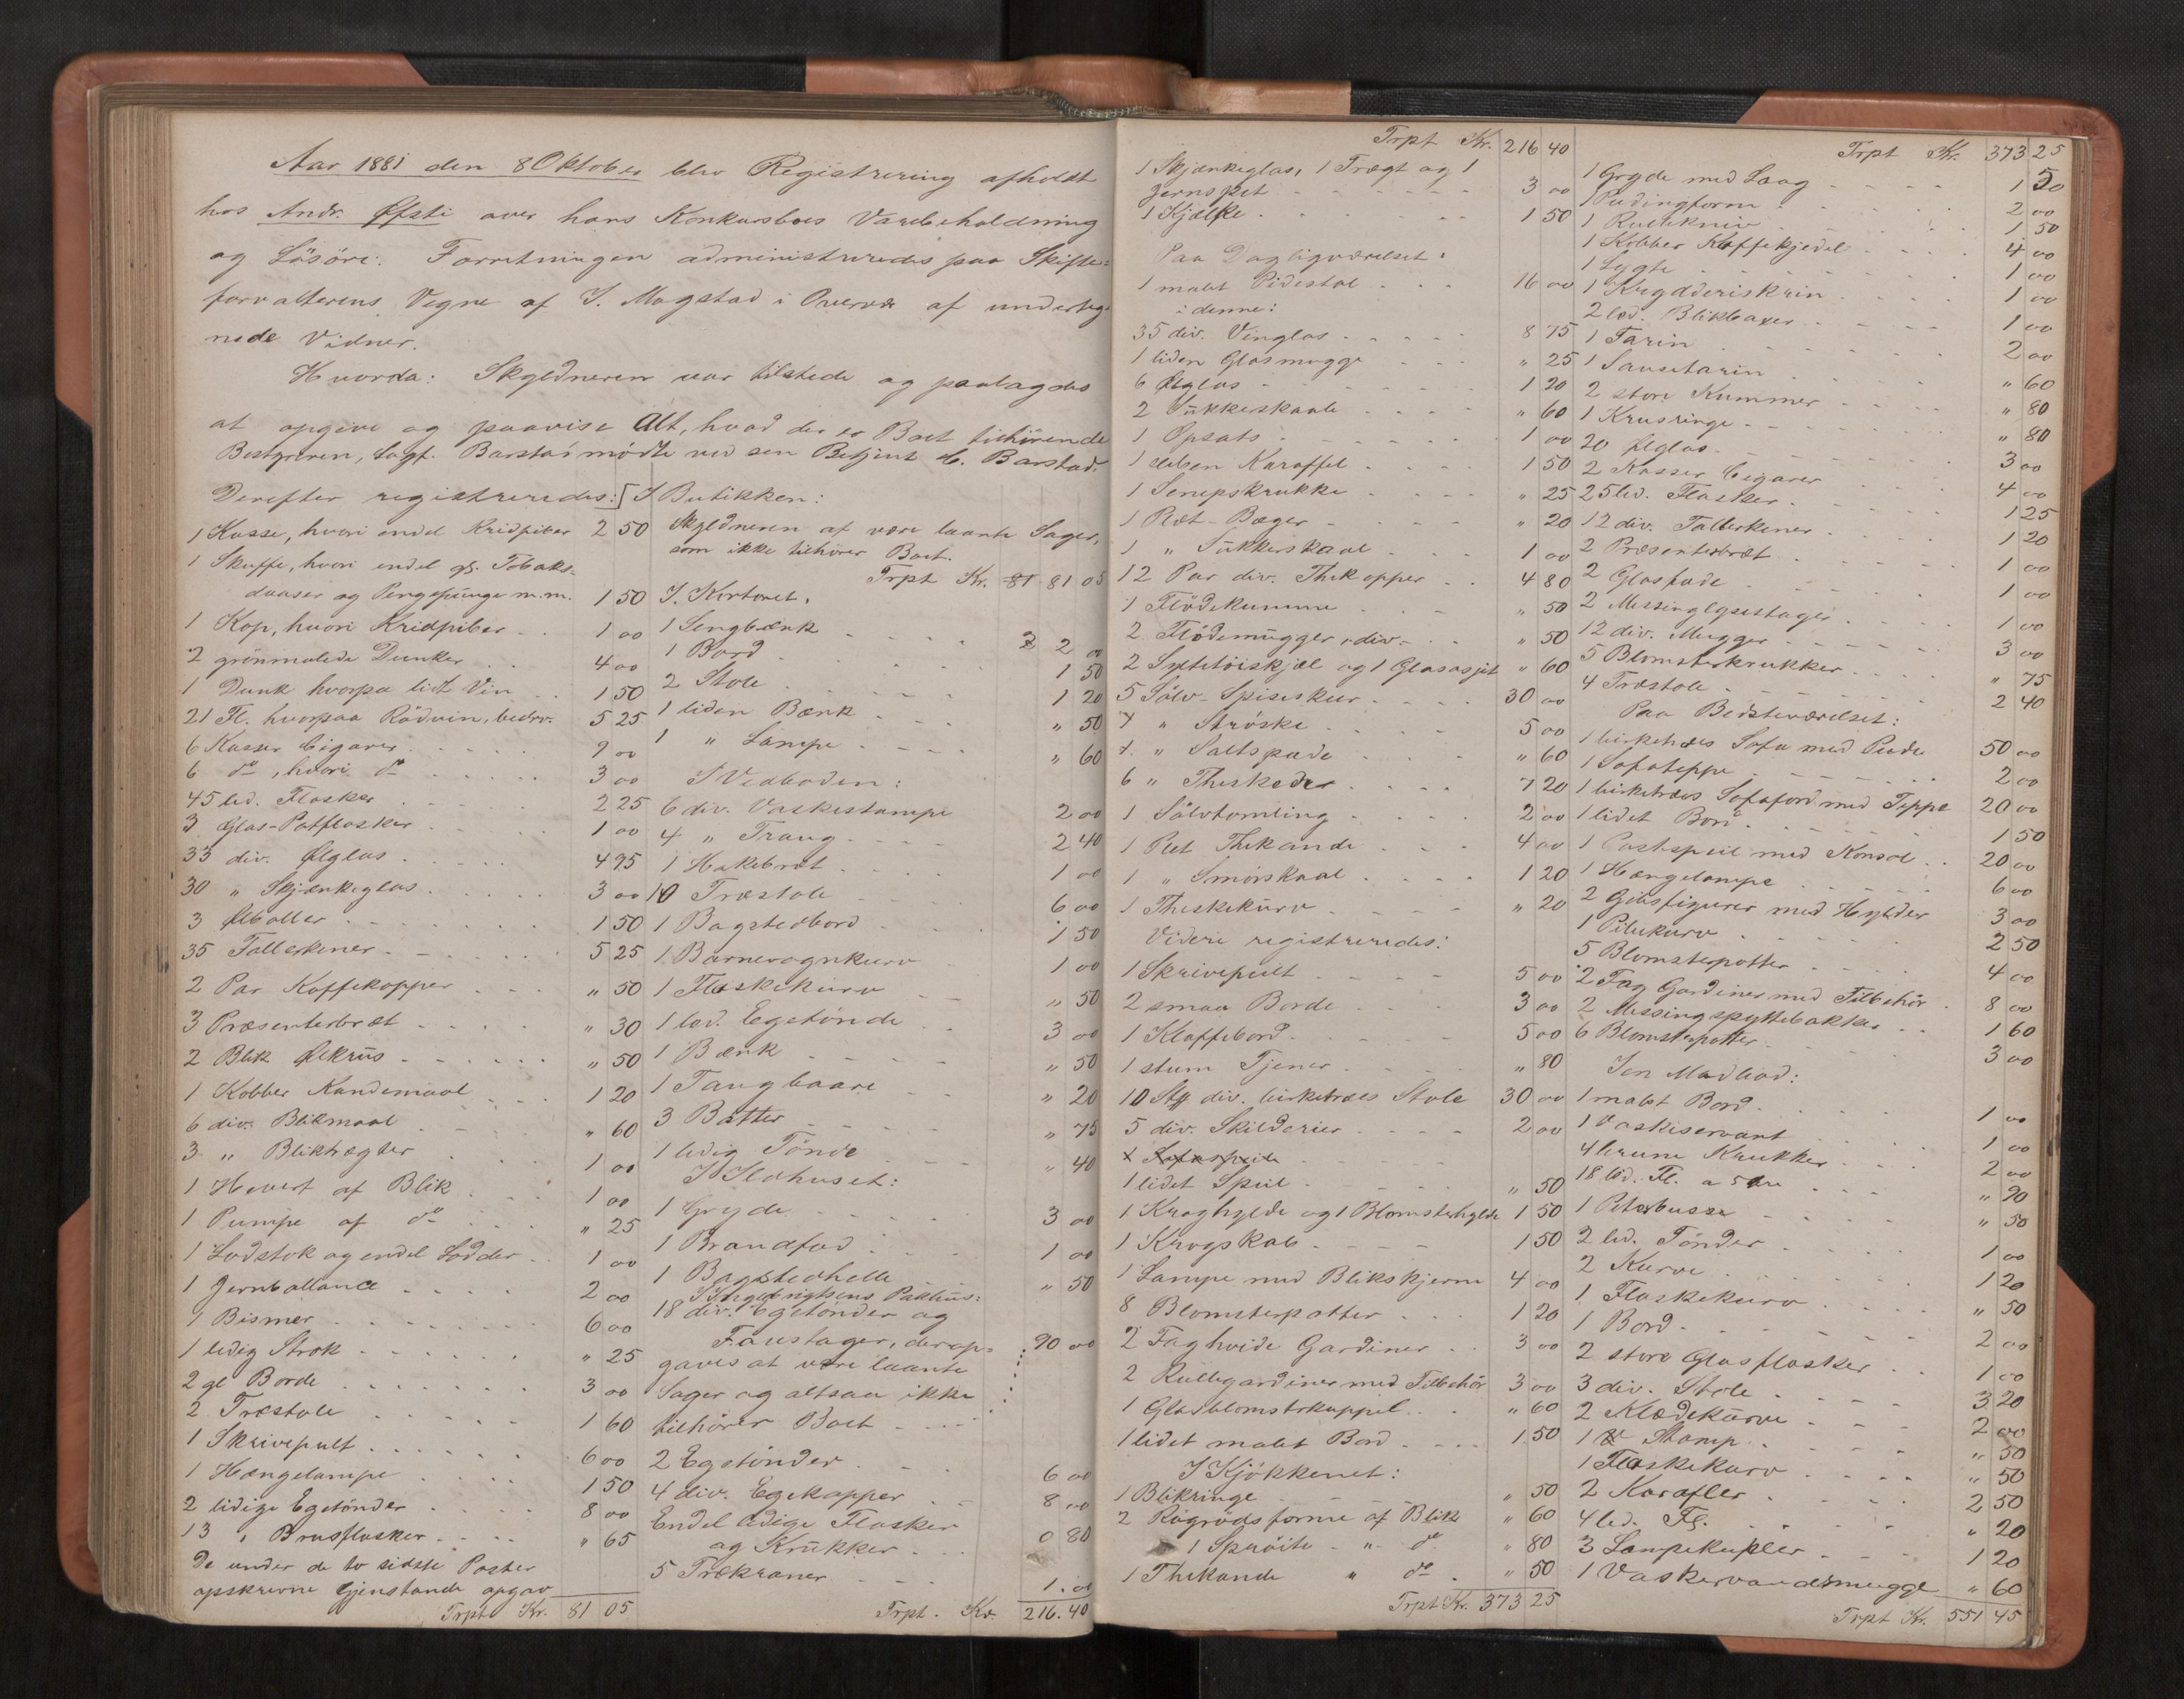 Aar 1881 den 8 Oktober blev Registrering afholdt
hos Andr. Øfsti over hans Konkursboes Varebeholdning
og Lösöre. Forretningen administreredes paa Skifte=
forvalterens Vegne af I. Mogstad i Overvær af underteg=
nede Vidner.
Hvorda: Skyldneren var tilstede og paalagdes
at opgive og paavise Alt, hvad der er Boet tilhörende
Bestyreren, Sagf. Barstad mödte ved sen Betjent C. Barstad.
Derefter registreredes: I Butikken:
1 Kasse, hvori endel Kridpiber 2 50
1 Skuffe, hvori endel gl. Tobaks-
daaser og Pengepunge m.m. 1 50
1 Kop, hvori Kridpiber 1 00
2 grönmalede Dunker 4 00
1 Dunk hvorpaa lidt Vin 1 50
21 Fl. hvorpaa Rödvin, bedrv. 5 25
6 Kasser Cigarer 9 00
6 do, hvori do 3 00
45 led. Flasker 2 25
3 Glas-Potflasker 1 00
33 div. Ølglas 4 95
30 " Skjænkeglas 3 00
3 Ølboller 1 50
35 Tallerkener 5 25
2 Par Kaffekopper " 50
3 Præsenterbræt " 30
2 Blik Ølkrus " 50
1 Kobber Kandemaal 1 20
6 div. Blikmaal " 60
3 " Bliktragter 1 00
1 Hevert af Blik 1 00
1 Pumpe af do " 25
1 Lodstok og endel Lodder 1 00
1 Jernballance 2 00
1 Bismer 6 00
1 ledig Strok " 25
2 gl Borde 3 00
2 Træstole 1 60
1 Skrivepult 6 00
1 Hængelampe 1 50
2 lidige Egetönder 8 00
13 " Brusflasker " 65
De under de to sidste Poster
opskrevne Gjenstande opgav
Trpt Kr. 81 05
Skyldneren af være laante Sager,
som ikke tilhörer Boet.
Trpt Kr. 81 81 05
I. Kontoret.
1 Sengbænk 2 2 00
1 Bord 1 50
2 Stole 1 20
1 liden Bænk " 50
1 " Lampe " 60
I Vedboden:
6 div. Vaskestampe 2 00
4 " Traug 2 40
1 Hakkebræt 1 00
10 Træstole 6 00
1 Bagstebord 1 50
1 Barnevognkurv 1 00
1 Flaskekurv " 50
1 led. Egetönde 3 00
1 Bænk " 50
1 Taugbaare " 20
3 Bøtter " 75
1 ledig Tönde " 40
I Ildhuset:
1 Gryde 3 00
1 Brandfad 1 00
1 Bagstehelle " 50
I Pakhus:
18 div. Egetönder og
Faustager, derop-
gaves at være laante
Sager og altsaa ikke
tilhörer Boet 90 00
2 Egetönder 6 00
4 div. Egekopper 8 00
Endel ledige Flasker
og Krukker 0 80
5 Trækraner 1.00
Trpt. Kr. 216.40
Trpt Kr. 216 40
1 Skjænkeglas, 1 Tragt og 1
Jernspet 3 00
1 Kjælke 1 50
Paa Dagligværelset:
1 malet Pidestal 16 00
i denne:
35 div. Vinglas 8 75
1 liden Glasmugge " 25
6 Ølglas 1 20
2 Sukkeskaale " 60
1 Opsats 1 00
1 sleben Karaffel 1 50
1 Senepskrukke " 25
1 Plet-Bæger " 20
1 " Sukkerskaal 1 00
12 Par div. Thekopper 4 80
1 Flödekumme " 50
2 Flödemugger, div " 50
2 Syltetöiskjæl og 1 Glasasjet " 60
5 Sölv-Spiseskeer 30 00
1 " Ströske 5 00
1 " Saltspade " 60
6 " Theskeder 7 20
1 Sölvtomling 2 00
1 Plet Thekande 4 00
1 " Smörskaal 1 20
1 Theskekurv " 20
Videre registreredes:
1 Skrivepult 5 00
2 smaa Borde 3 00
1 Klaffebord 5 00
1 stum Tjener " 80
10 Stk div. birketræes Stole 30 00
5 div. Skilderier 2 00
1 Sofaspeile
1 lidet Speil " 50
1 Kroghylde og 1 Blomsterhylde 1 50
1 Krogskab 1 50
1 Lampe med Blikskjerm 4 00
8 Blomsterpotter 1 20
2 Fag hvide Gardiner 3 00
2 Rullegardiner med Tilbehör 3 00
1 Glasblomsterkuppel " 60
1 lidet malet Bord 1 50
I Kjökkenet:
1 Blikringe " 50
2 Rögrödsforme af Blik " 60
1 Spröite " do " 80
1 Thekande " do " 50
Trpt Kr. 373 25
Trpt Kr. 373 25
1 Gryde med Laag 1 50
1 Pudingform 2 00
1 Rullekniv 1 50
1 Kobber Kaffekjedel 4 00
1 Lygte 1 00
1 Krydderiskrin 1 00
2 led. Blikbaxer 1 00
1 Tarin 2 00
1 Sausetarin " 60
2 store Kummer " 80
1 Krusringe " 80
20 Ølglas 3 00
2 Kasser Cigarer 4 00
25 led. Flasker 1 25
12 div. Tallerkener 1 20
2 Præsenterbræt 1 00
2 Glasfade 1 00
2 Messinglysestager 1 00
12 div. Mugger 3 00
5 Blomsterkrukker " 75
4 Træstole 2 40
Paa Bedsteværelset:
1 birketræes Sofa med Pude 50 00
1 Sofateppe 2 00
1 birketræes Sofabord med Teppe 20 00
1 lidet Bord 1 50
1 Postspeil med Konsol 20 00
1 Hængelampe 6 00
2 Gibsfigurer med Hylder 3 00
1 Pilekurv 2 50
5 Blomsterpotter 4 00
2 Fag Gardiner med Tilbehör 8 00
2 Messingspyttebakker 1 60
6 Blomsterpotter 3 00
I en Madbod:
1 malet Bord 1 00
1 Vaskeservant 1 00
4 brune Krukker 2 00
18 led. Fl. a 5 Øre " 90
1 " 50
2 led. Tönder 1 00
2 Kurve 1 20
1 Flaskekurv " 50
1 Bord 2 00
2 store Glasflasker 1 00
3 div. Stole 3 20
2 Klædekurve 2 00
1 Stamp " 50
1 Flaskekurv " 50
2 Karafler 2 50
4 led. Fl. " 20
3 Lampekupler 1 20
1 Vaskevandsmugge " 60
Trpt Kr. 551 45